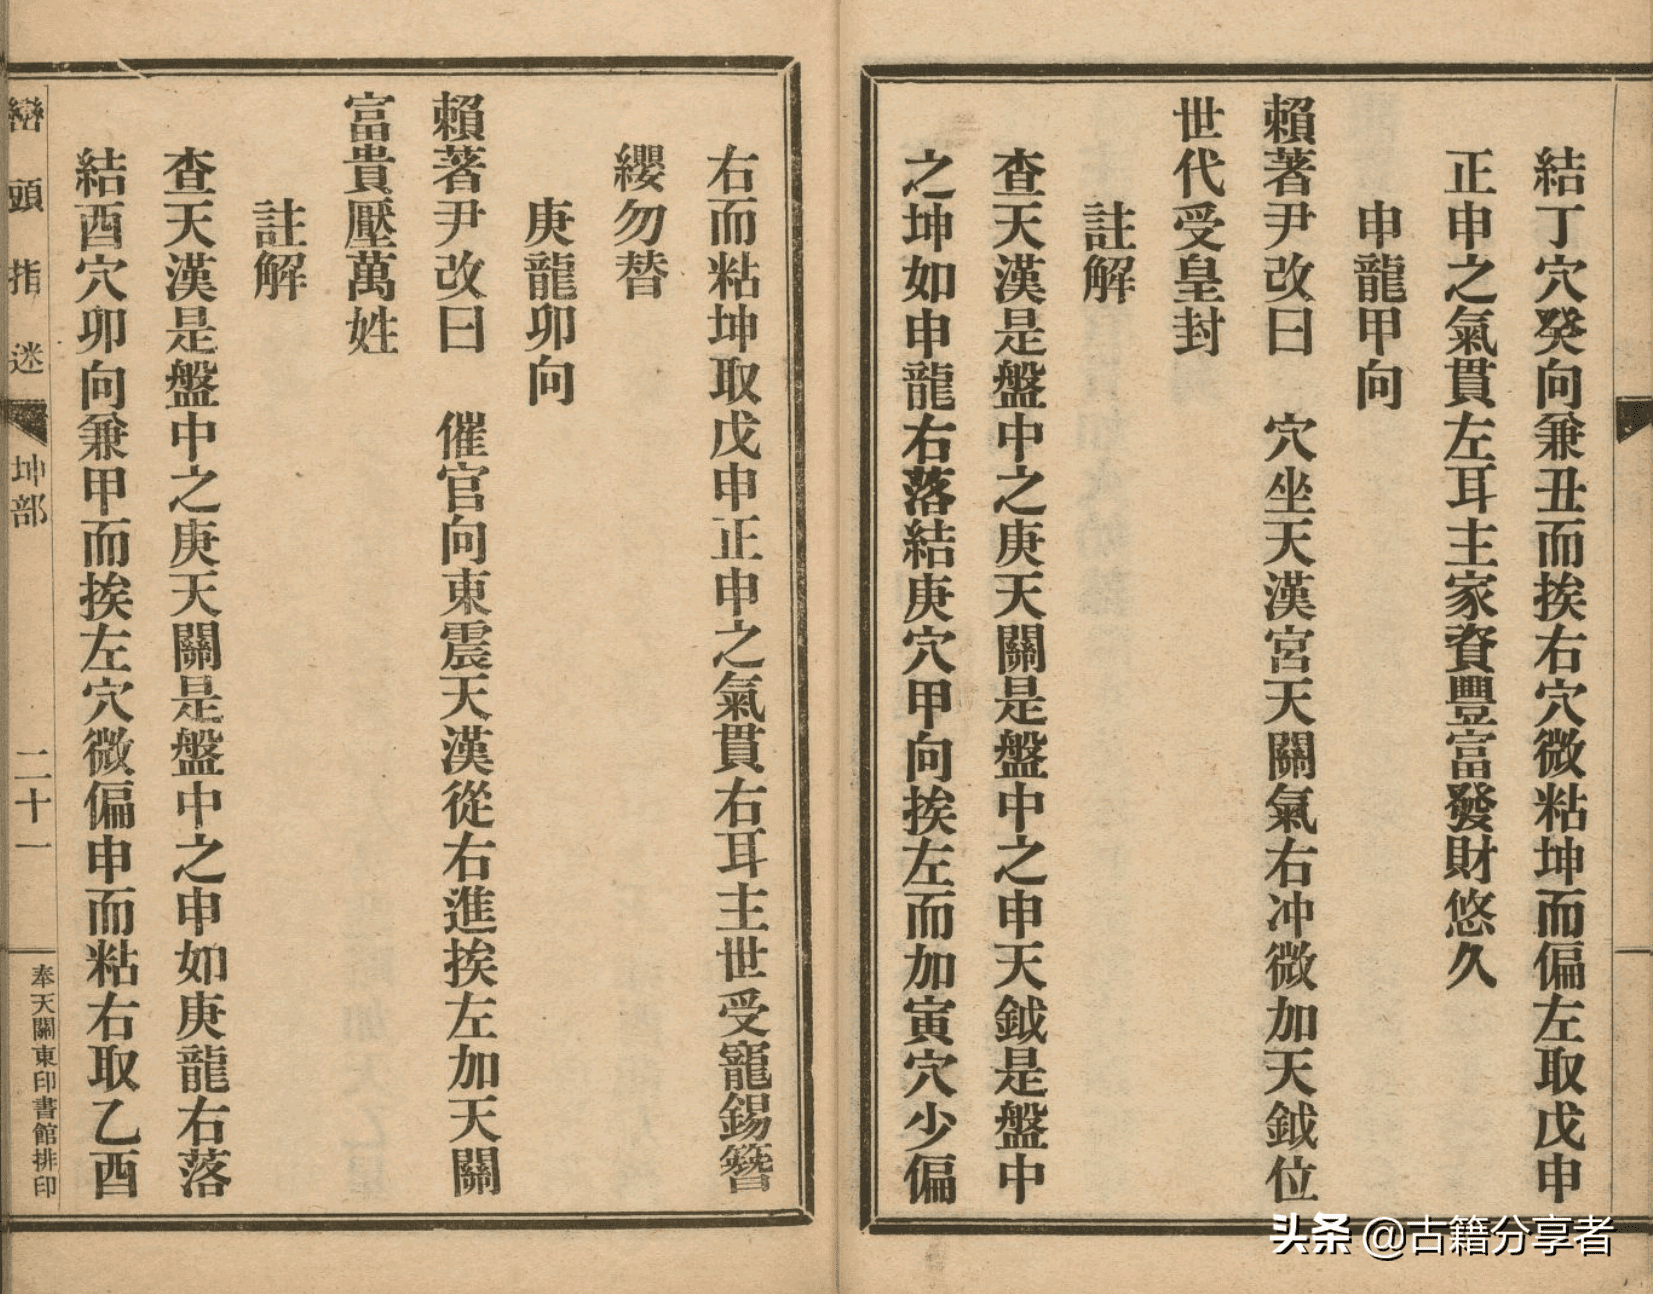 結丁穴癸向兼丑而挨右穴微粘坤而偏左取戊申
正申之氣貫左耳主家資豐富發財悠久
申龍甲向
賴著尹改曰　穴坐天漢宮天關氣右冲微加天鉞位
世代受皇封
註解
查天漢是盤中之庚天關是盤中之申天鉞是盤中
之坤如申龍右落結庚穴甲向挨左而加寅穴少偏
右而粘坤取戊申正申之氣貫右耳主世受寵錫簪
纓勿替
庚龍卯向
賴著尹改曰　催官向東震天漢從右進挨左加天關
富貴壓萬姓
註解
查天漢是盤中之庚天關是盤中之申如庚龍右落
結酉穴卯向兼甲而挨左穴微偏申而粘右取乙酉
巒頭指迷
坤部
二十一
奉天關東印書館排印
头条 @古籍分享者